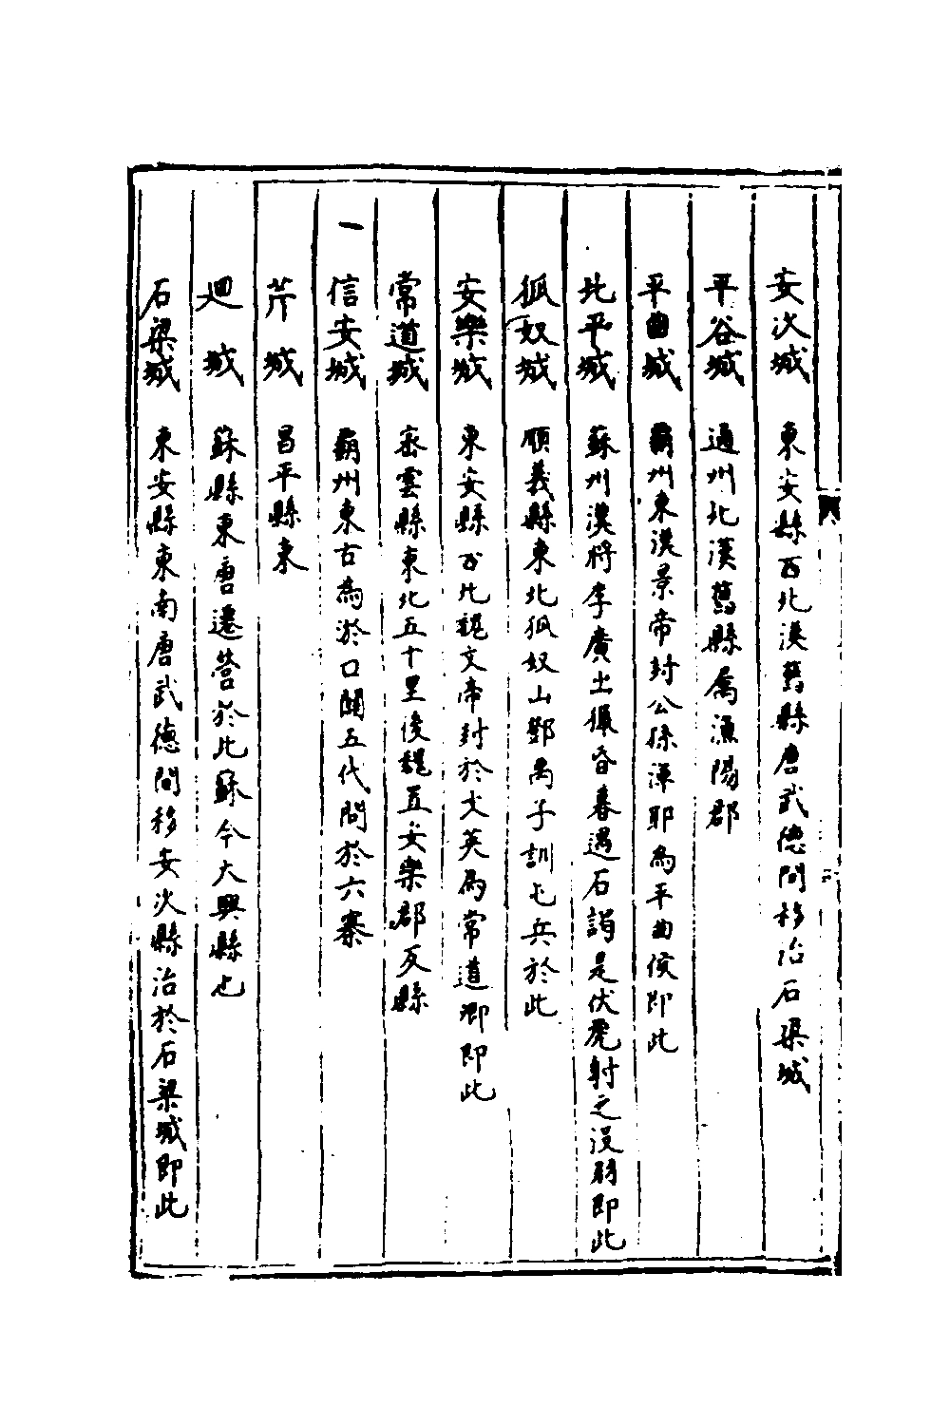 安次城 東安縣西北漢舊縣唐武德間移治石梁城
平谷城 通州北漢舊縣屬漁陽郡
平曲城 霸州東漢景帝封公孫渾耶為平曲侯即此
北平城 蘇州漢將李廣土獵昏暮遇石謂是伏虎射之沒羽即此
狐奴城 順義縣東北狐奴山鄧禹子訓屯兵於此
安樂城 東安縣西北魏文帝封於尤英為常道卿即此
常道城 密雲縣東北五十里後魏置安樂郡及縣
信安城 霸州東古為淤口關五代間於六寨
芹城 昌平縣東
廻城 蘇縣東唐遷營於此蘇今大興縣也
石梁城 東安縣東南唐武德間移安次縣治於石梁城即此